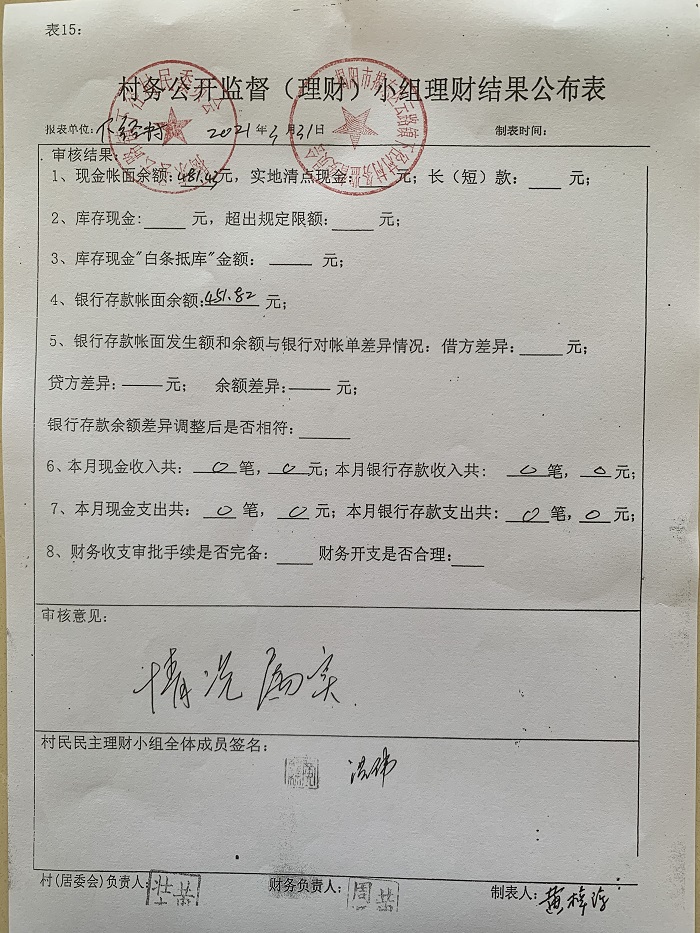 表15:
村务公开监督（理财）小组理财结果公布表
报表单位: 下径村 2021年3月31日 制表时间:
审核结果:
1、现金帐面余额:481.42元, 实地清点现金:___元; 长（短）款:___元;
2、库存现金:____元, 超出规定限额:____元;
3、库存现金"白条抵库"金额: ____元;
4、银行存款帐面余额:451.82元;
5、银行存款帐面发生额和余额与银行对帐单差异情况: 借方差异:____元;
贷方差异:____元; 余额差异:____元;
银行存款余额差异调整后是否相符:_____
6、本月现金收入共: 0笔, 0元; 本月银行存款收入共: 0笔, 0元;
7、本月现金支出共: 0笔, 0元; 本月银行存款支出共: 0笔, 0元;
8、财务收支审批手续是否完备:____ 财务开支是否合理:____
审核意见:
情况属实
村民民主理财小组全体成员签名:
村(居委会)负责人: 财务负责人: 制表人: 黄